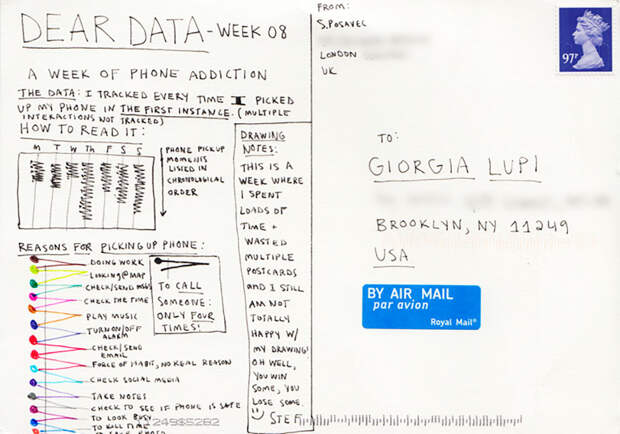 DEAR DATA - WEEK 08
A WEEK OF PHONE ADDICTION
THE DATA: I TRACKED EVERY TIME I PICKED
UP MY PHONE IN THE FIRST INSTANCE. (MULTIPLE
INTERACTIONS NOT TRACKED)
HOW TO READ IT:
M T W Th F S S
PHONE PICKUP
MOMENTS
LISTED IN
CHRONOLOGICAL
ORDER
REASONS FOR PICKING UP PHONE:
DOING WORK
LOOKING@MAP
CHECK/SEND MSGS
CHECK THE TIME
PLAY MUSIC
TURN ON/OFF
ALARM
CHECK/SEND
EMAIL
FORCE OF HABIT, NO REAL REASON
CHECK SOCIAL MEDIA
TAKE NOTES
CHECK TO SEE IF PHONE IS SAFE
TO LOOK BUSY
TO KILL TIME
TO CALL
SOMEONE:
ONLY FOUR
TIMES!
DRAWING
NOTES:
THIS IS A
WEEK WHERE
I SPENT
LOADS OF
TIME +
WASTED
MULTIPLE
POSTCARDS
AND I STILL
AM NOT
TOTALLY
HAPPY W/
MY DRAWING!
OH WELL,
YOU WIN
SOME, YOU
LOSE SOME.
STEF
249$5282
FROM:
S. POSAVEC
LONDON
UK
97P
TO:
GIORGIA LUPI
BROOKLYN, NY 11249
USA
BY AIR MAIL
par avion
Royal Mail®